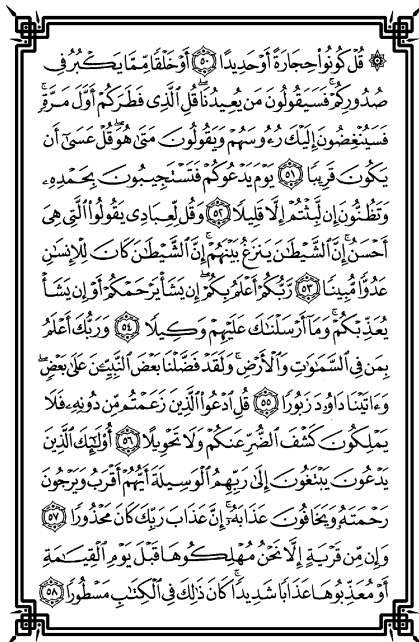 ۞ قُلْ كُونُوا۟ حِجَارَةً أَوْ حَدِيدًا ٥٠ أَوْ خَلْقًا مِّمَّا يَكْبُرُ فِى
صُدُورِكُمْ ۚ فَسَيَقُولُونَ مَن يُعِيدُنَا ۖ قُلِ ٱلَّذِى فَطَرَكُمْ أَوَّلَ مَرَّةٍ ۚ
فَسَيُنْغِضُونَ إِلَيْكَ رُءُوسَهُمْ وَيَقُولُونَ مَتَىٰ هُوَ ۖ قُلْ عَسَىٰٓ أَن
يَكُونَ قَرِيبًا ٥١ يَوْمَ يَدْعُوكُمْ فَتَسْتَجِيبُونَ بِحَمْدِهِۦ
وَتَظُنُّونَ إِن لَّبِثْتُمْ إِلَّا قَلِيلًا ٥٢ وَقُل لِّعِبَادِى يَقُولُوا۟ ٱلَّتِى هِىَ
أَحْسَنُ ۚ إِنَّ ٱلشَّيْطَٰنَ يَنزَغُ بَيْنَهُمْ ۚ إِنَّ ٱلشَّيْطَٰنَ كَانَ لِلْإِنسَٰنِ
عَدُوًّا مُّبِينًا ٥٣ رَّبُّكُمْ أَعْلَمُ بِكُمْ ۖ إِن يَشَأْ يَرْحَمْكُمْ أَوْ إِن يَشَأْ
يُعَذِّبْكُمْ ۚ وَمَآ أَرْسَلْنَٰكَ عَلَيْهِمْ وَكِيلًا ٥٤ وَرَبُّكَ أَعْلَمُ
بِمَن فِى ٱلسَّمَٰوَٰتِ وَٱلْأَرْضِ ۗ وَلَقَدْ فَضَّلْنَا بَعْضَ ٱلنَّبِيِّـۧنَ عَلَىٰ بَعْضٍ ۖ
وَءَاتَيْنَا دَاوُۥدَ زَبُورًا ٥٥ قُلِ ٱدْعُوا۟ ٱلَّذِينَ زَعَمْتُم مِّن دُونِهِۦ فَلَا
يَمْلِكُونَ كَشْفَ ٱلضُّرِّ عَنكُمْ وَلَا تَحْوِيلًا ٥٦ أُو۟لَٰٓئِكَ ٱلَّذِينَ
يَدْعُونَ يَبْتَغُونَ إِلَىٰ رَبِّهِمُ ٱلْوَسِيلَةَ أَيُّهُمْ أَقْرَبُ وَيَرْجُونَ
رَحْمَتَهُۥ وَيَخَافُونَ عَذَابَهُۥٓ ۚ إِنَّ عَذَابَ رَبِّكَ كَانَ مَحْذُورًا ٥٧
وَإِن مِّن قَرْيَةٍ إِلَّا نَحْنُ مُهْلِكُوهَا قَبْلَ يَوْمِ ٱلْقِيَٰمَةِ
أَوْ مُعَذِّبُوهَا عَذَابًا شَدِيدًا ۚ كَانَ ذَٰلِكَ فِى ٱلْكِتَٰبِ مَسْطُورًا ٥٨